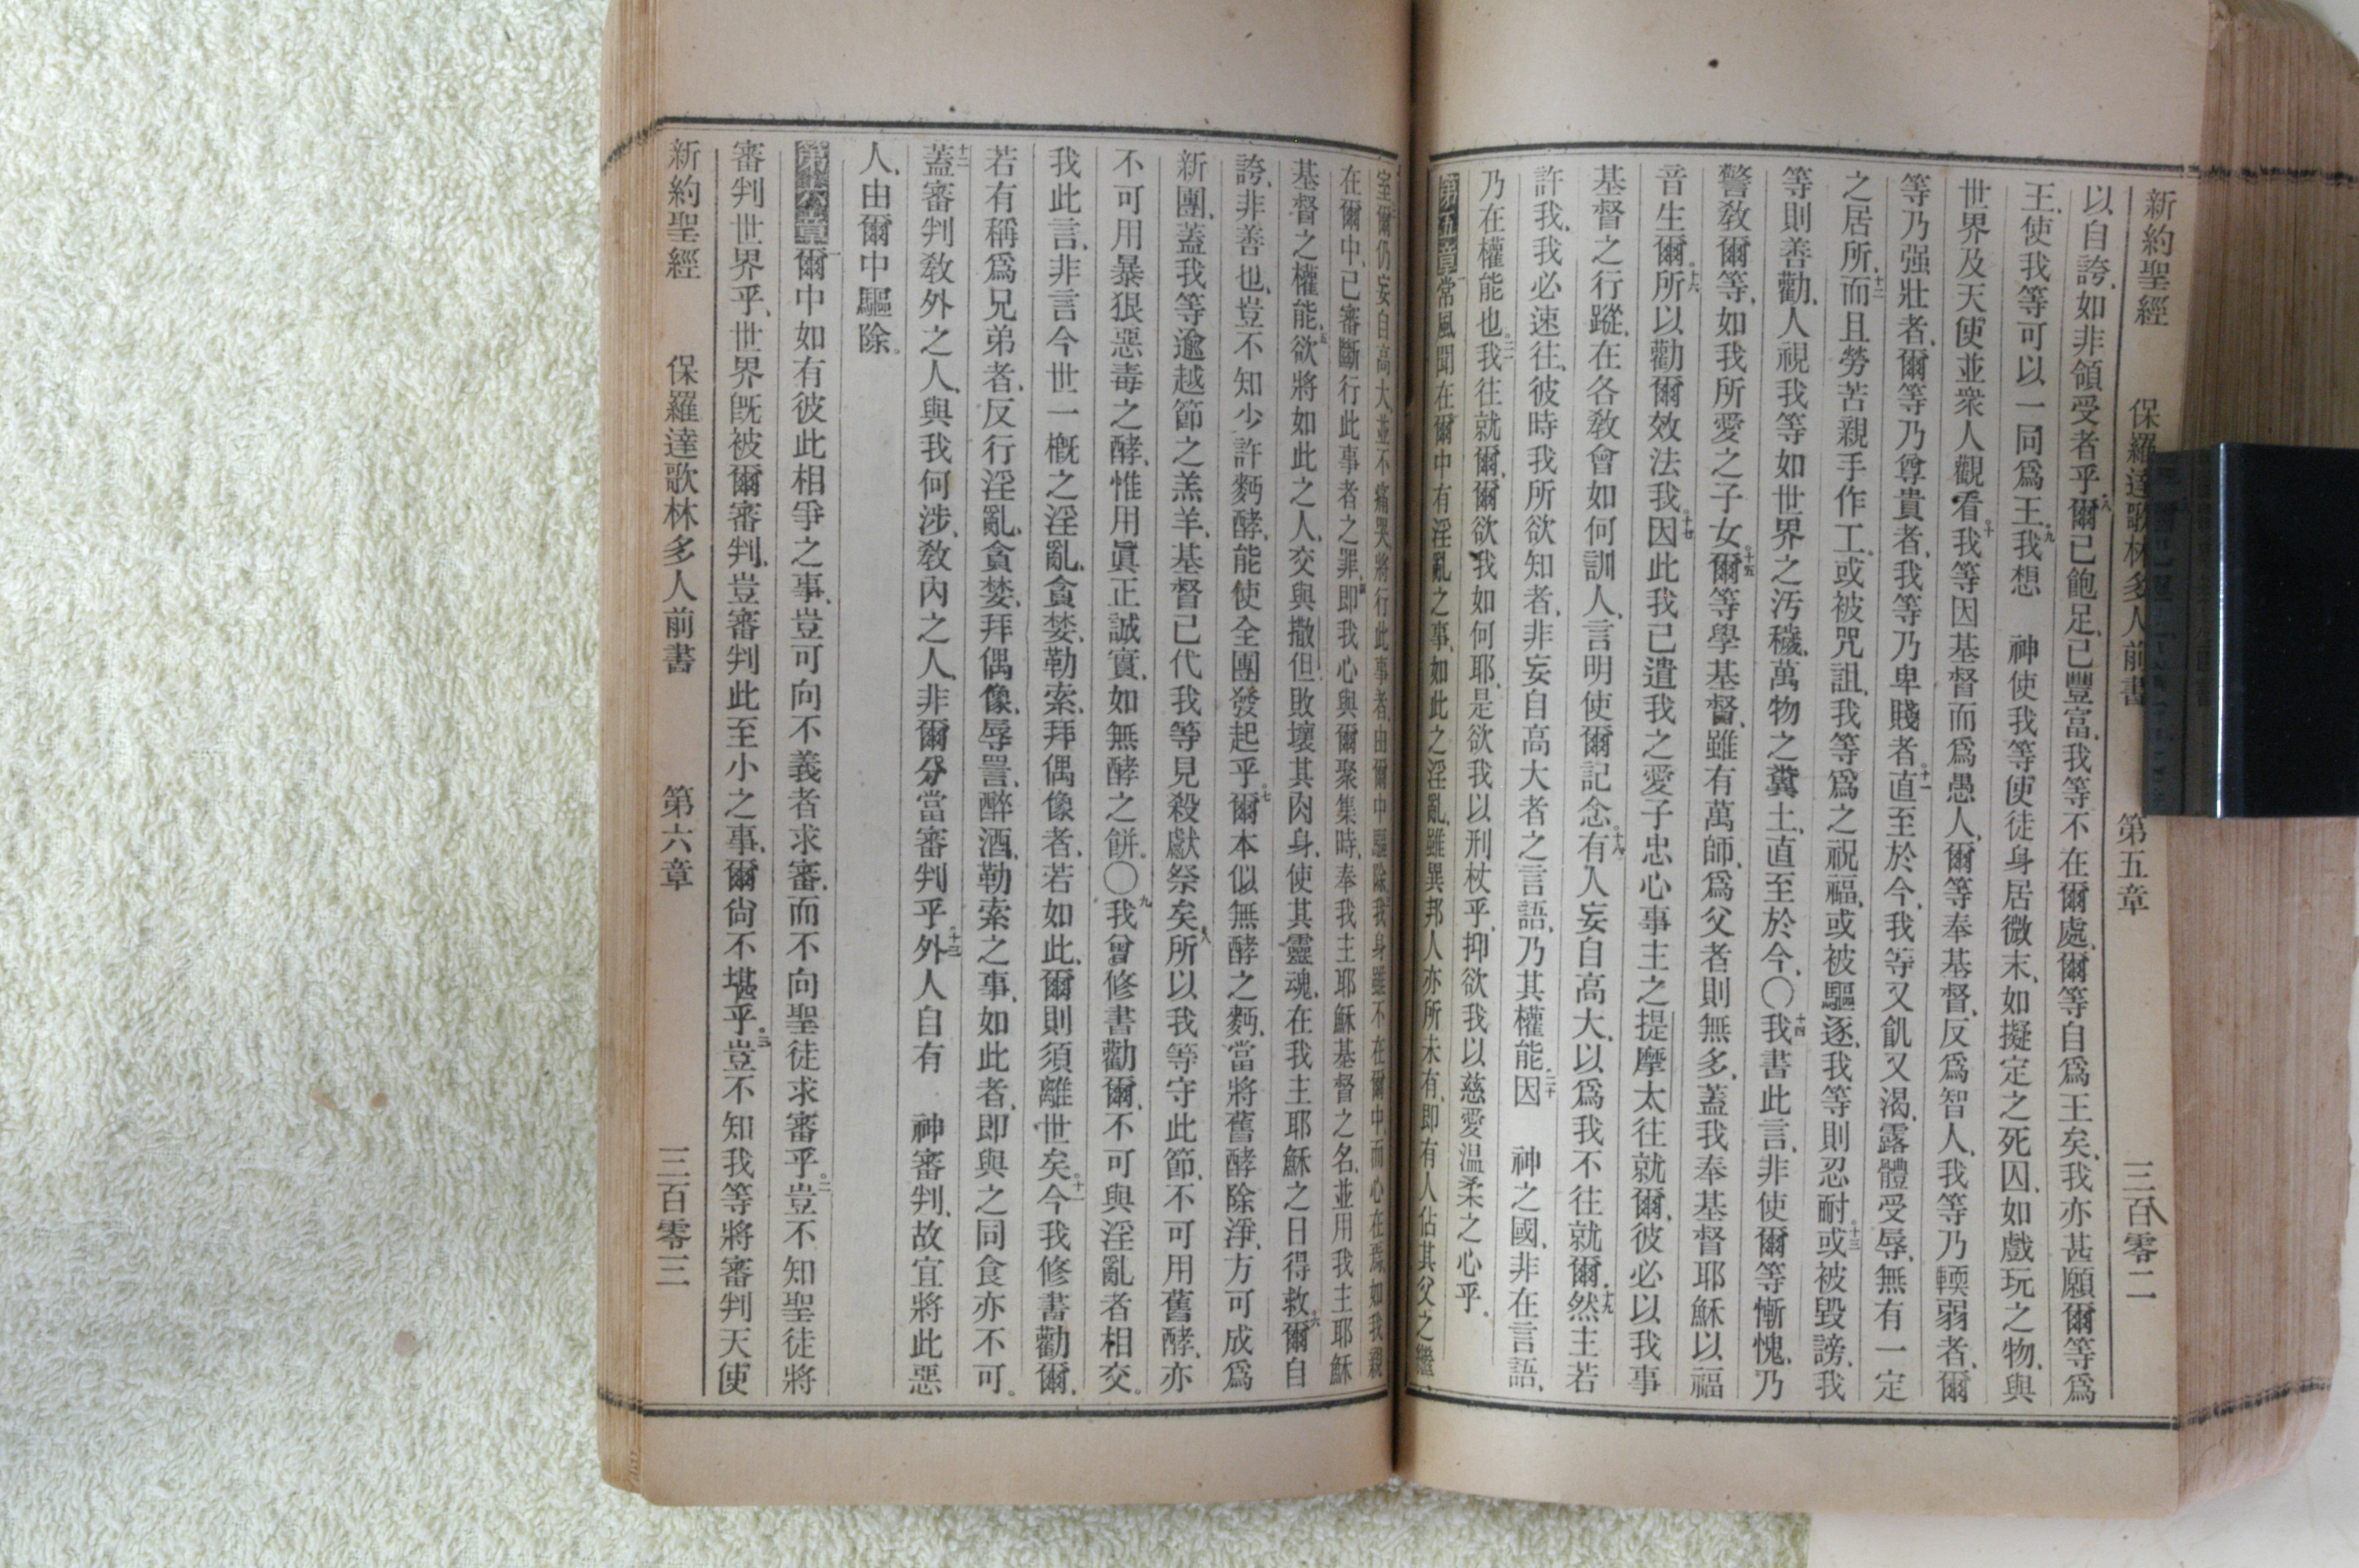 新約聖經 保羅達歌林多人前書 第五章 三百零二
以自誇、如非領受者乎。八爾已飽足、已豐富、我等不在爾處、爾等自爲王矣、我亦甚願爾等爲
王、使我等可以一同爲王。九我想 神使我等使徒身居微末、如擬定之死囚、如戲玩之物、與
世界及天使並衆人觀看。十我等因基督而爲愚人、爾等奉基督、反爲智人、我等乃輭弱者、爾
等乃强壯者、爾等乃尊貴者、我等乃卑賤者。十一直至於今、我等又飢又渴、露體受辱、無有一定
之居所。十二而且勞苦親手作工。或被咒詛、我等爲之祝福、或被驅逐、我等則忍耐。十三或被毀謗、我
等則善勸、人視我等如世界之汚穢、萬物之糞土、直至於今、〇十四我書此言、非使爾等慚愧、乃
警敎爾等、如我所愛之子女。十五爾等學基督、雖有萬師、爲父者則無多、蓋我奉基督耶穌以福
音生爾。十六所以勸爾效法我。十七因此我已遣我之愛子忠心事主之提摩太往就爾、彼必以我事
基督之行蹤、在各敎會如何訓人、言明使爾記念。十八有人妄自高大、以爲我不往就爾。十九然主若
許我、我必速往、彼時我所欲知者、非妄自高大者之言語、乃其權能。二十因 神之國、非在言語、
乃在權能也。二一我往就爾、爾欲我如何耶、是欲我以刑杖乎、抑欲我以慈愛温柔之心乎。
第五章一常風聞在爾中有淫亂之事、如此之淫亂、雖異邦人亦所未有、即有人佔其父之繼
室、爾仍妄自高大、並不痛哭、將行此事者、由爾中驅除、我身雖不在爾中、而心在焉、如我親
在爾中、已審斷行此事者之罪、四即我心與爾聚集時、奉我主耶穌基督之名、並用我主耶穌
基督之權能、五欲將如此之人、交與撒但、敗壞其肉身、使其靈魂、在我主耶穌之日得救。六爾自
誇、非善也、豈不知少許麪酵、能使全團發起乎。七爾本似無酵之麪、當將舊酵除淨、方可成爲
新團、蓋我等逾越節之羔羊、基督已代我等見殺獻祭矣。八所以我等守此節、不可用舊酵、亦
不可用暴狠惡毒之酵、惟用眞正誠實、如無酵之餅。〇九我曾修書勸爾、不可與淫亂者相交。
我此言、非言今世一概之淫亂、貪婪、勒索、拜偶像者、若如此、爾則須離世矣。十一今我修書勸爾、
若有稱爲兄弟者、反行淫亂、貪婪、拜偶像、辱詈、醉酒、勒索之事、如此者、即與之同食亦不可。
十二蓋審判敎外之人、與我何涉、敎內之人、非爾分當審判乎。十三外人自有 神審判、故宜將此惡
人、由爾中驅除。
第六章一爾中如有彼此相爭之事、豈可向不義者求審、而不向聖徒求審乎。二豈不知聖徒將
審判世界乎、世界旣被爾審判、豈審判此至小之事、爾尙不堪乎。三豈不知我等將審判天使
新約聖經 保羅達歌林多人前書 第六章 三百零三